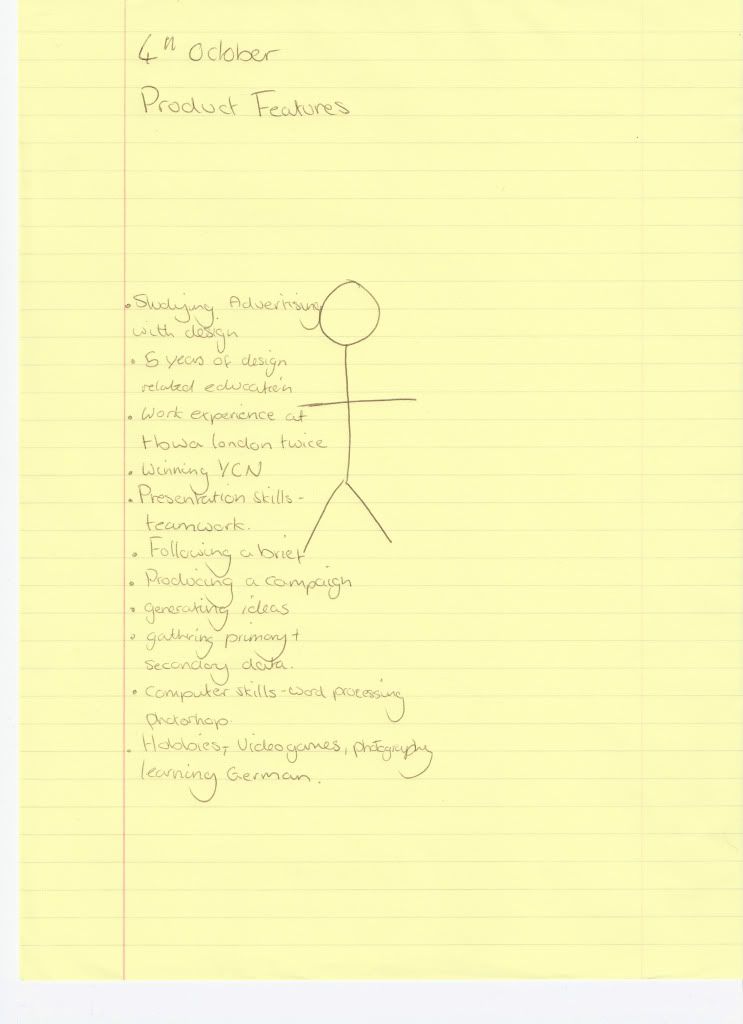 4th October
Product Features
• Studying Advertising
with design
• 5 years of design
related education
• Work experience at
tbwa london twice
• Winning YCN
• Presentation skills -
teamwork.
• Following a brief
• Producing a campaign
• generating ideas
• gathering primary +
secondary data.
• Computer skills - word processing
photoshop.
• Hobbies, Videogames, photography
learning German.